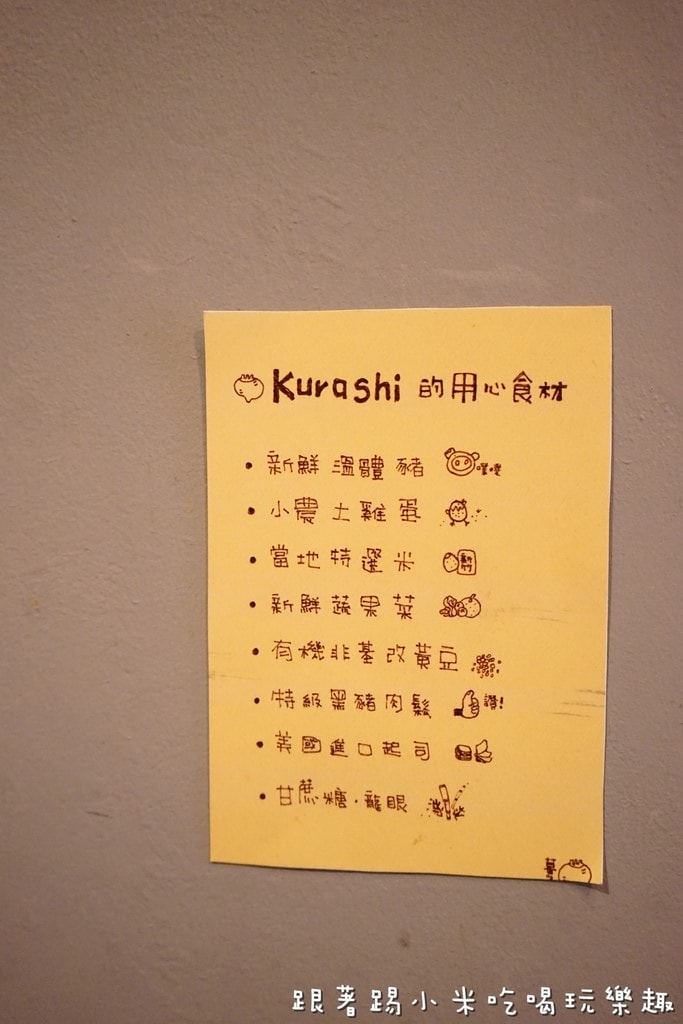 Kurashi 的用心食材
• 新鮮溫體豬 嘿嘿
• 小農土雞蛋
• 當地特選米
• 新鮮蔬果菜
• 有機非基改黃豆
• 特級黑豬肉鬆 讚!
• 美國進口起司
• 甘蔗糖・龍眼
跟著踢小米吃喝玩樂趣